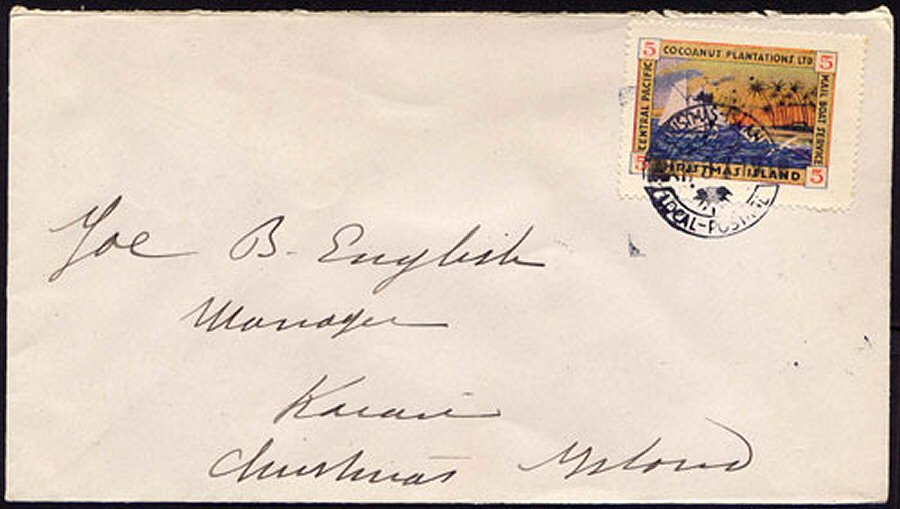 5 COCOANUT PLANTATIONS LTD 5
CENTRAL PACIFIC
MAIL BOAT SERVICE
5 CHRISTMAS ISLAND 5
LOCAL-POSTAGE
Joe B. English
Manager
Christmas Island